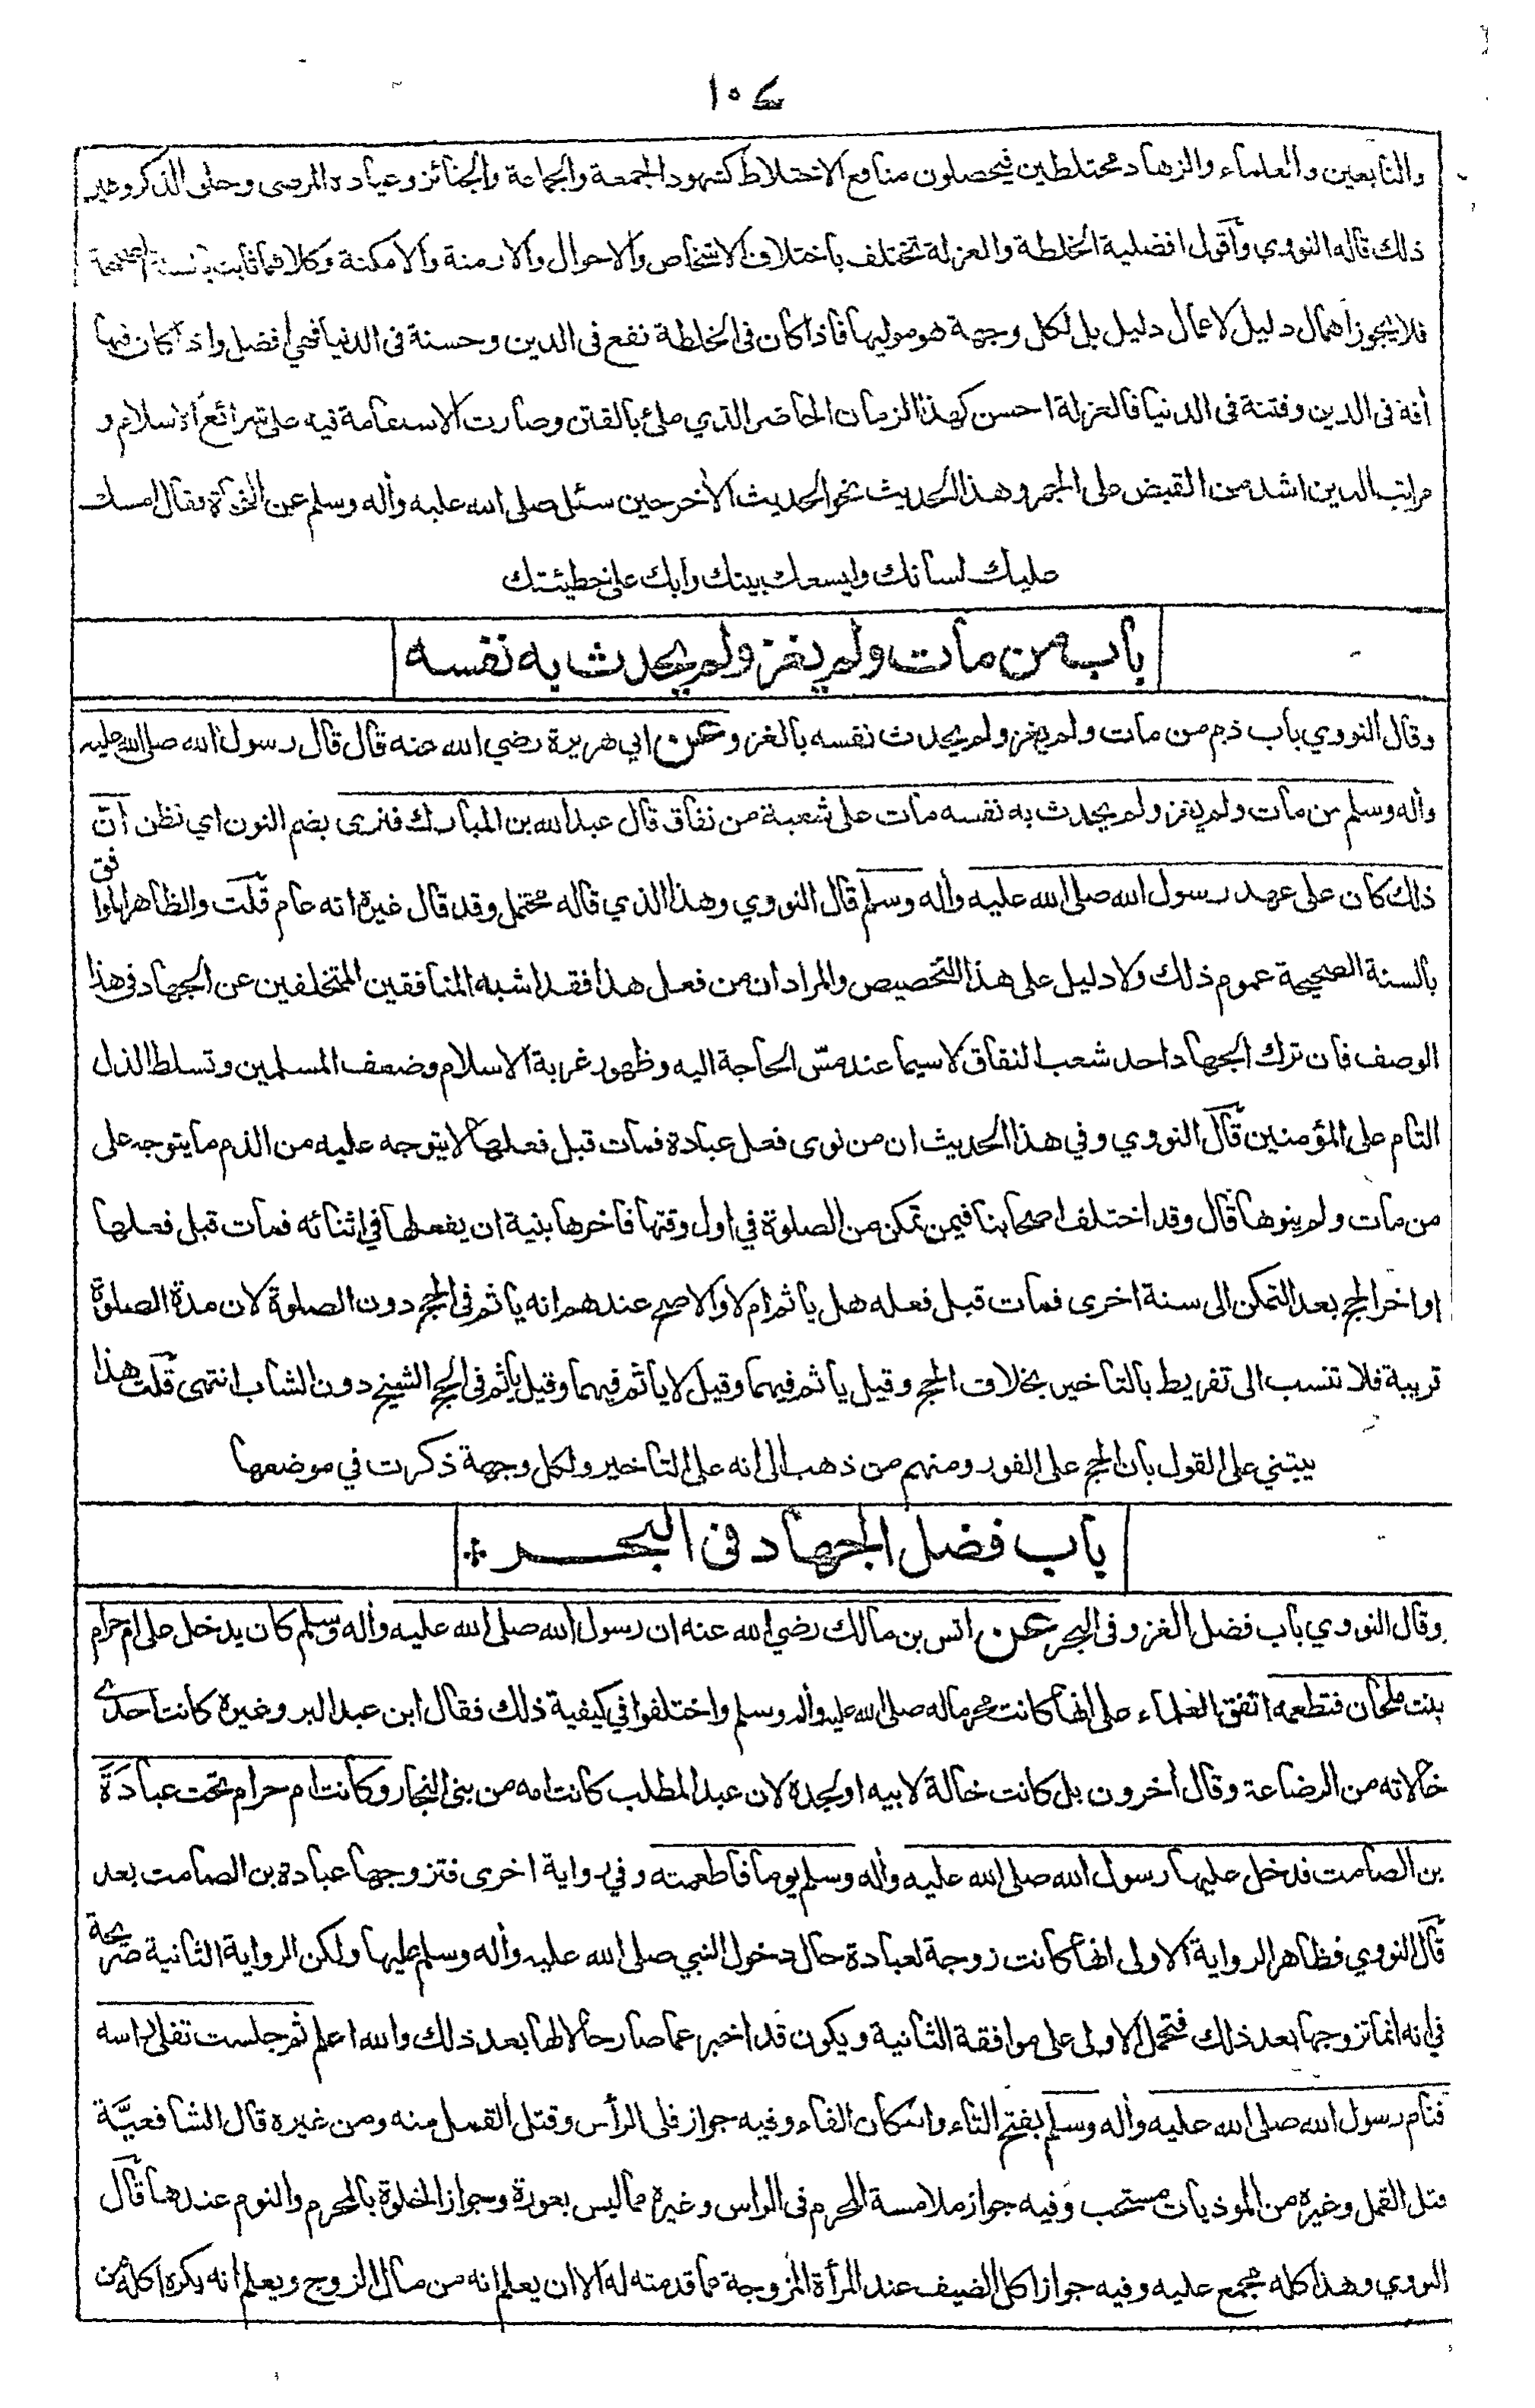 والتابعين والعلماء والزهاد مختلطين فيحصلون منافع الاختلاط كشهود الجمعة والجماعة والجنائز وعيادة المرضى وحلق الذكر وغير
ذلك قاله النووي وأقول افضلية الخلطة والعزلة تختلف باختلاف الاشخاص والاحوال والازمنة والامكنة وكلاهما ثابت بالسنة الصحيحة
فلا يجوز اهمال دليل لاعمال دليل بل لكل وجهة هو موليها فاذا كان في الخلطة نفع في الدين وحسنة في الدنيا فهي أفضل واذا كان فيها
أفة في الدين وفتنة في الدنيا فالعزلة احسن كهذا الزمان الحاضر الذي ملئ بالفتن وصارت الاستقامة فيه على شرائع الاسلام و
مراتب الدين اشد من القبض على الجمر وهذا الحديث نحو الحديث الأخر حين سئل صلى الله عليه وأله وسلم عن النجاة فقال امسك
عليك لسانك وليسعك بيتك وابك على خطيئتك
باب من مات ولم يغز ولم يحدث به نفسه
وقال النووي باب ذم من مات ولم يغز ولم يحدث نفسه بالغزو عن ابي هريرة رضي الله عنه قال قال رسول الله صلى الله عليه
وأله وسلم من مات ولم يغز ولم يحدث به نفسه مات على شعبة من نفاق قال عبد الله بن المبارك فنرى بضم النون اي نظن أن
ذلك كان على عهد رسول الله صلى الله عليه وأله وسلم قال النووي وهذا الذي قاله محتمل وقد قال غيره انه عام قلت والظاهر الموافق
بالسنة الصحيحة عموم ذلك ولا دليل على هذا التخصيص والمراد ان من فعل هذا فقد اشبه المنافقين المتخلفين عن الجهاد في هذا
الوصف فان ترك الجهاد احد شعب النفاق لا سيما عند مسّ الحاجة اليه وظهور غربة الاسلام وضعف المسلمين وتسلط الذل
التام على المؤمنين قال النووي وفي هذا الحديث ان من نوى فعل عبادة فمات قبل فعلها لا يتوجه عليه من الذم ما يتوجه على
من مات ولم ينوها قال وقد اختلف اصحابنا فيمن تمكن من الصلوة في اول وقتها فاخرها بنية ان يفعلها في اثنائه فمات قبل فعلها
او اخر الحج بعد التمكن الى سنة اخرى فمات قبل فعله هل يأثم ام لا والاصح عندهم انه يأثم في الحج دون الصلوة لان مدة الصلوة
قريبة فلا تنسب الى تفريط بالتاخير بخلاف الحج وقيل يأثم فيهما وقيل لا يأثم فيهما وقيل يأثم في الحج الشيخ دون الشاب انتهى قلت هذا
يبتني على القول بان الحج على الفور ومنهم من ذهب الى انه على التاخير ولكل وجهة ذكرت في موضعها
باب فضل الجهاد في البحر
وقال النووي باب فضل الغزو في البحر عن انس بن مالك رضي الله عنه ان رسول الله صلى الله عليه وأله وسلم كان يدخل على ام حرام
بنت ملحان فتطعمه اتفق العلماء على انها كانت محرما له صلى الله عليه وأله وسلم واختلفوا في كيفية ذلك فقال ابن عبد البر وغيره كانت احدى
خالاته من الرضاعة وقال أخرون بل كانت خالة لابيه او لجده لان عبد المطلب كانت امه من بني النجار وكانت ام حرام تحت عبادة
بن الصامت فدخل عليها رسول الله صلى الله عليه وأله وسلم يوما فاطعمته وفي رواية اخرى فتزوجها عبادة بن الصامت بعد
قال النووي فظاهر الرواية الاولى انها كانت زوجة لعبادة حال دخول النبي صلى الله عليه وأله وسلم عليها ولكن الرواية الثانية صريحة
في انه انما تزوجها بعد ذلك فتحمل الاولى على موافقة الثانية ويكون قد اخبر عما صار حالا لها بعد ذلك والله اعلم ثم جلست تفلي راسه
فنام رسول الله صلى الله عليه وأله وسلم بفتح التاء واسكان الفاء وفيه جواز فلي الرأس وقتل القمل منه ومن غيره قال الشافعيّة
قتل القمل وغيره من الموذيات مستحب وفيه جواز ملامسة المحرم في الراس وغيره مما ليس بعورة وجواز الخلوة بالمحرم والنوم عندها قال
النووي وهذا كله مجمع عليه وفيه جواز اكل الضيف عند المرأة المزوجة مما قدمته له الا ان يعلم انه من مال الزوج ويعلم انه يكره اكله من